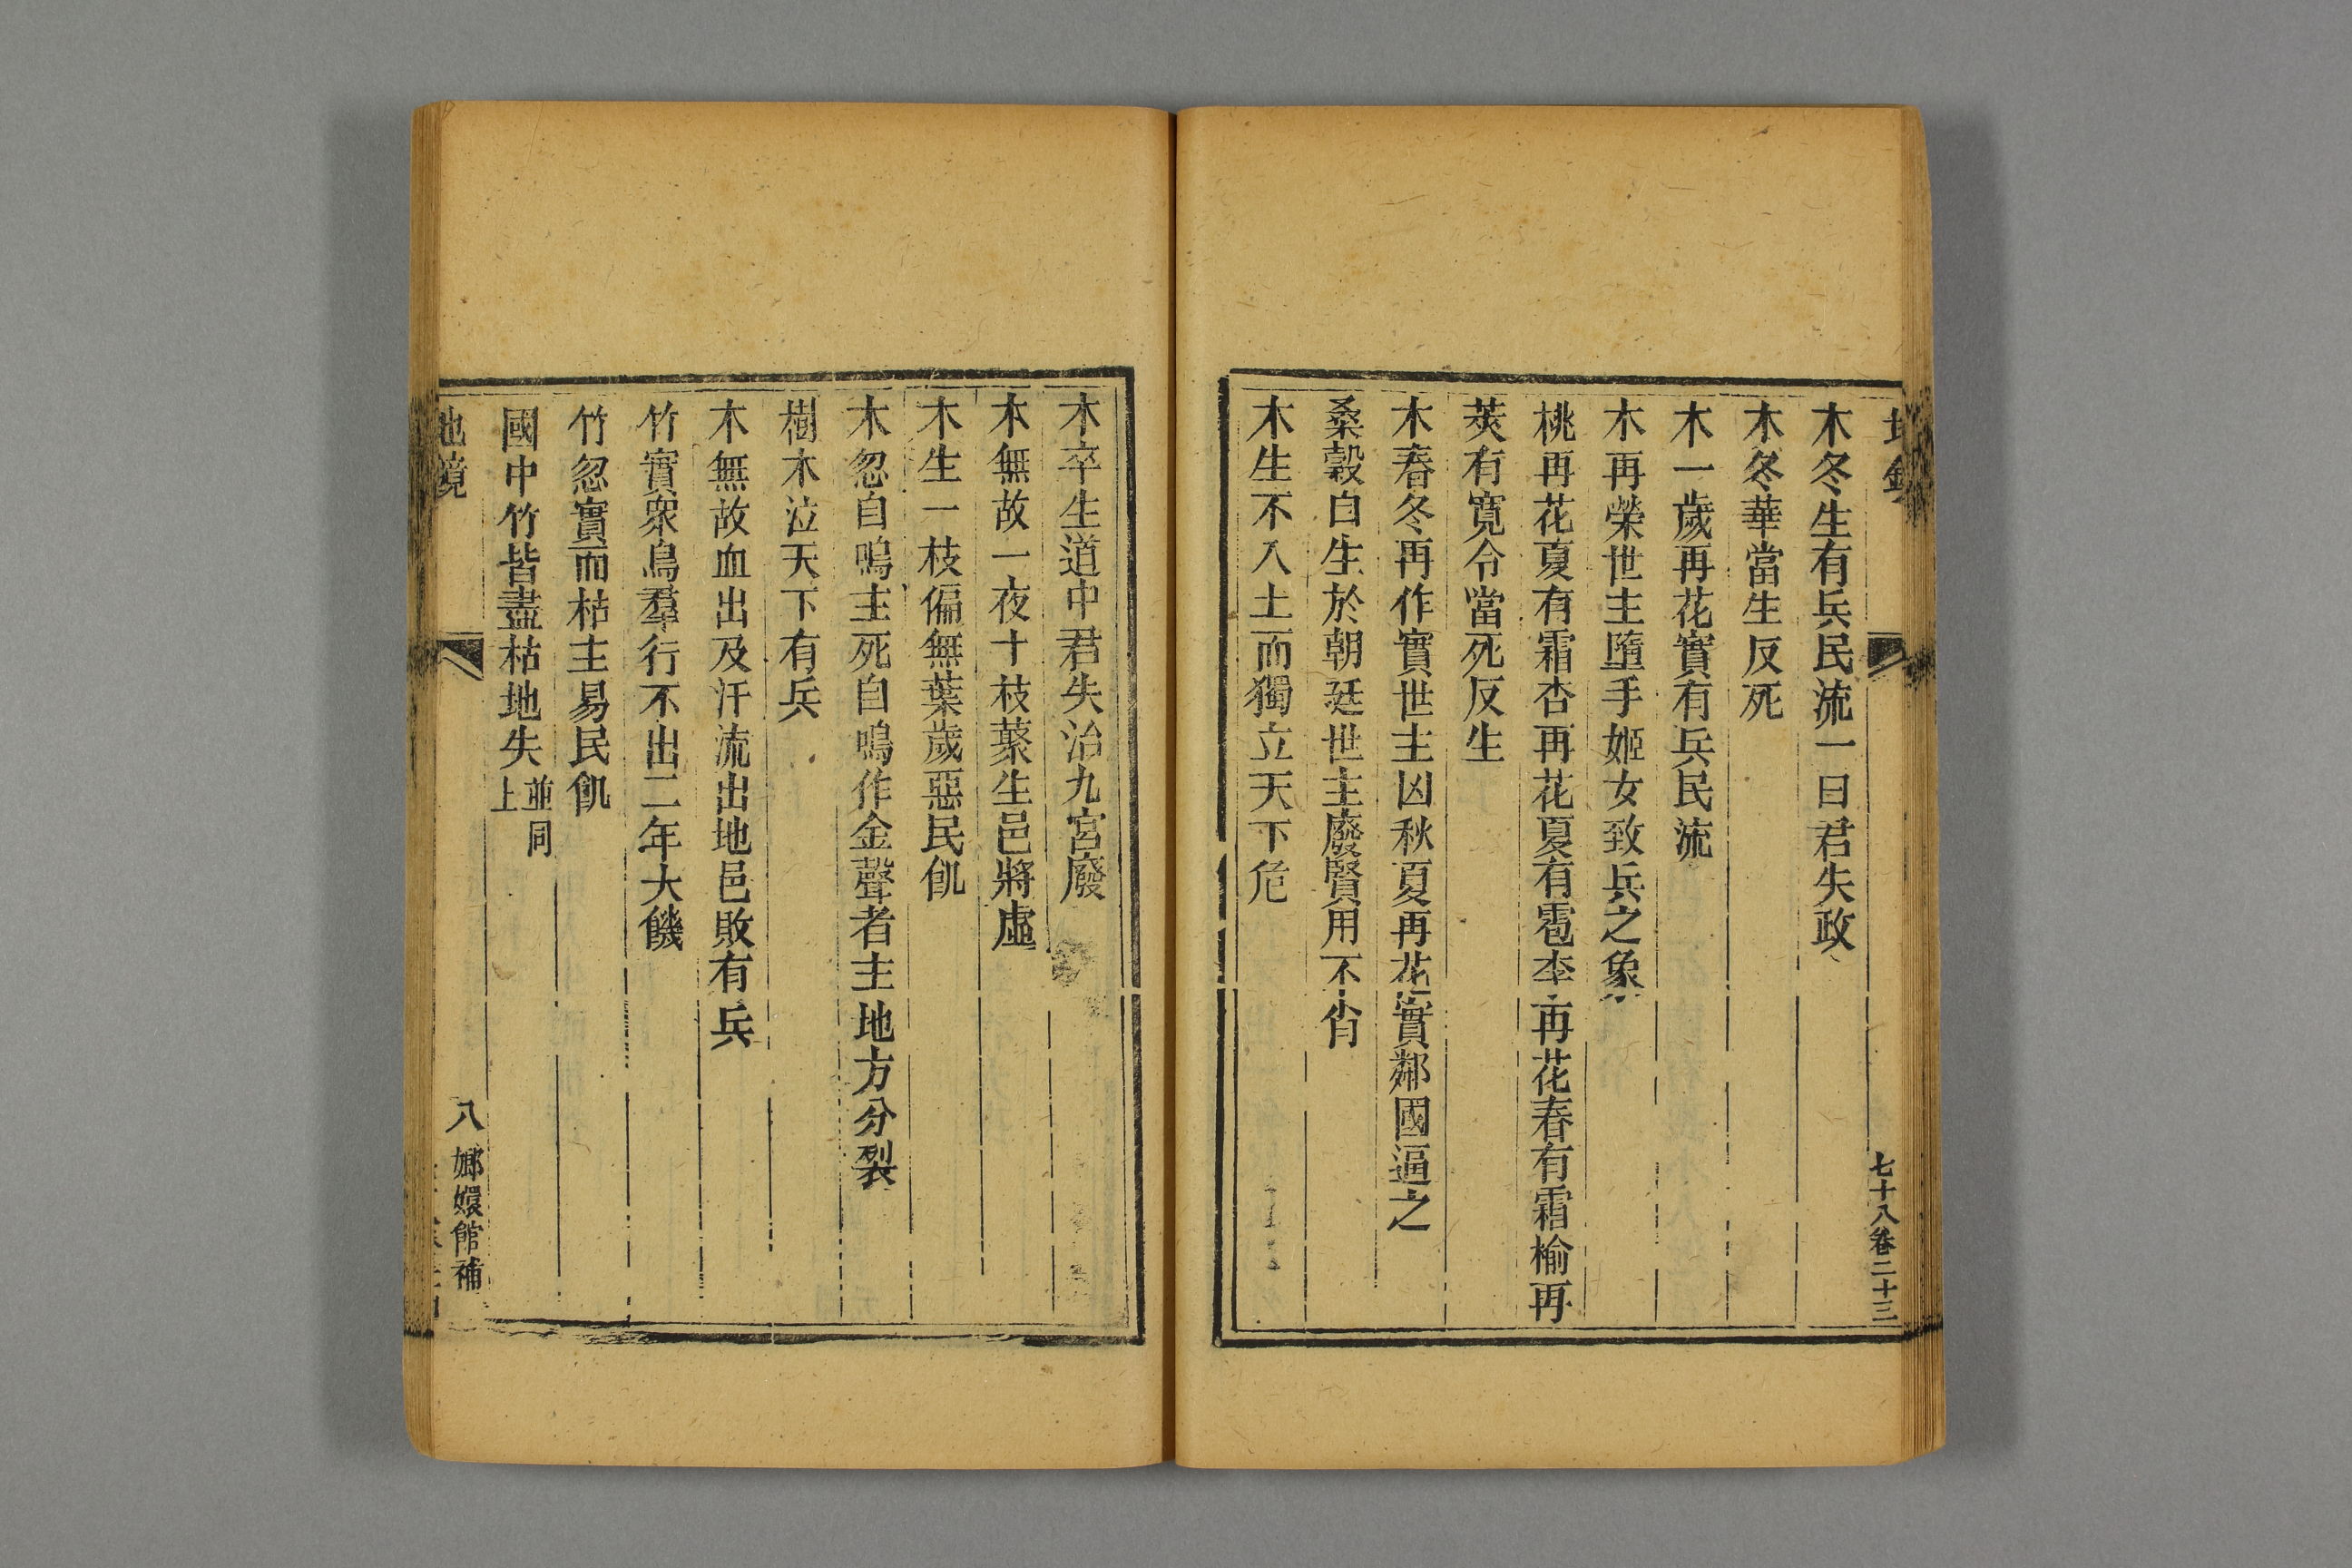 木冬生有兵民流一曰君失政
木冬華當生反死
木一歲再花實有兵民流
木再榮世主墮手姬女致兵之象
桃再花夏有霜杏再花夏有雹李再花春有霜榆再
莢有寬令當死反生
木春冬再作實世主凶秋夏再花實鄰國逼之
桑榖自生於朝廷世主廢賢用不肖
木生不入土而獨立天下危
七十八卷二十三
木卒生道中君失治九宮廢
木無故一夜十枝蓁生邑將虛
木生一枝偏無葉歲惡民飢
木忽自鳴主死自鳴作金聲者主地方分裂
樹木泣天下有兵
木無故血出及汗流出地邑敗有兵
竹實衆鳥羣行不出二年大饑
竹忽實而枯主易民飢
國中竹皆盡枯地失並同上
地鏡
八
嫏嬛館補